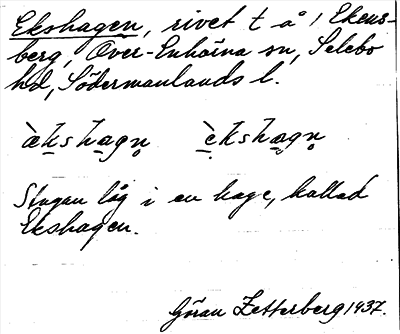 Ekshagen, rivet t å / Ekens-
berg, Över-Enhörna sn, Selebo
hd, Södermanlands l.
ὰkshagn̥ ὲkshagn̥
Stugan låg i en hage, kallad
Ekshagen.
Göran Zetterberg 1937.